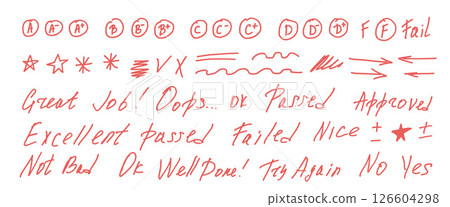 A A- A+ B B- B+ C C- C+ D D- D+ F F Fail
Great Job! Oops... ok Passed Approved
Excellent passed Failed Nice ± ±
Not Bad Ok Well Done! Try Again No Yes
PIXTA
126604298